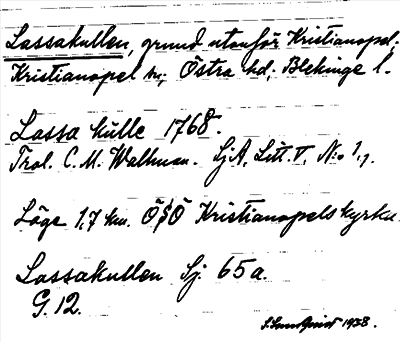 Lassakullen, grund utanför Kristianopel,
Kristianopel sn; Östra hd; Blekinge l.
Lassa kulle 1768.
Trol. C. M. Wallman. SjA, Litt. V, N:o 1,7.
Läge 1,7 km. ÖSÖ Kristianopels kyrka.
Lassakullen Sj. 65a.
G. 12.
1938.